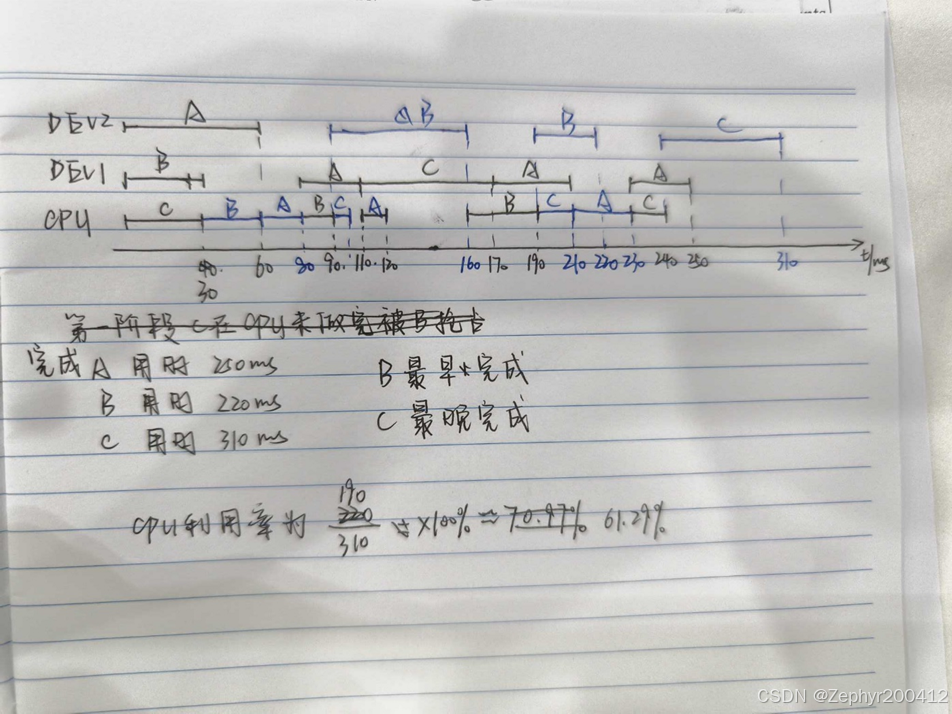 DEV2 A B B C
DEV1 B A C A A
CPU C B A B C A B C A C
30 60 80 90 110 120 160 170 190 210 220 230 240 250 310 t/ms
第一阶段 C 在 CPU 未做完被B抢占
完成 A 用时 250ms B 最早完成
B 用时 220ms
C 用时 310ms C 最晚完成
190
220
CPU利用率为 310 ×100% ≈ 70.97% 61.29%
CSDN @Zephyr200412